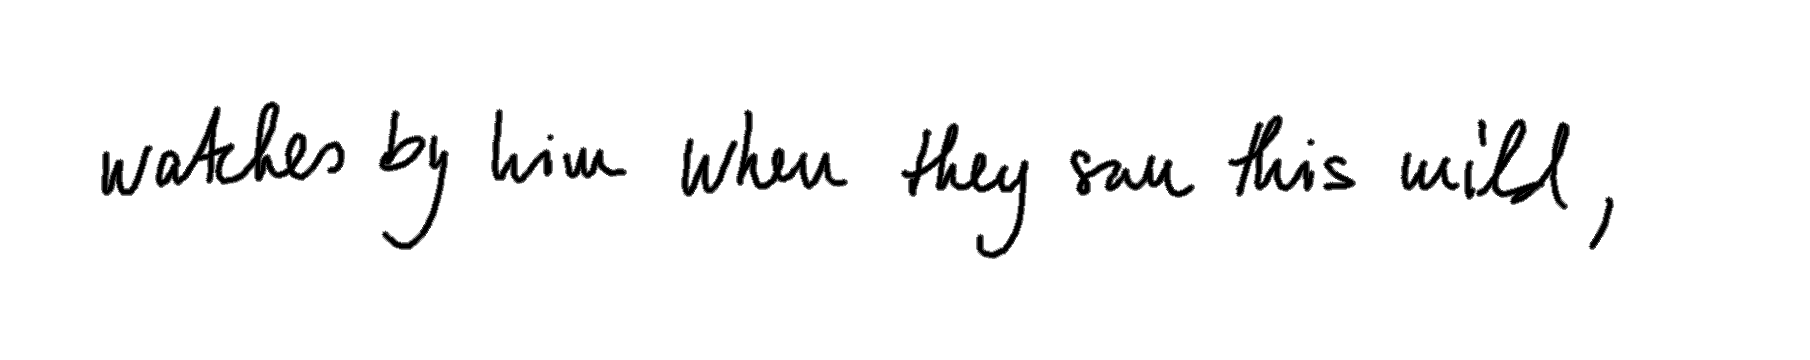 watches by him when they saw this mild,